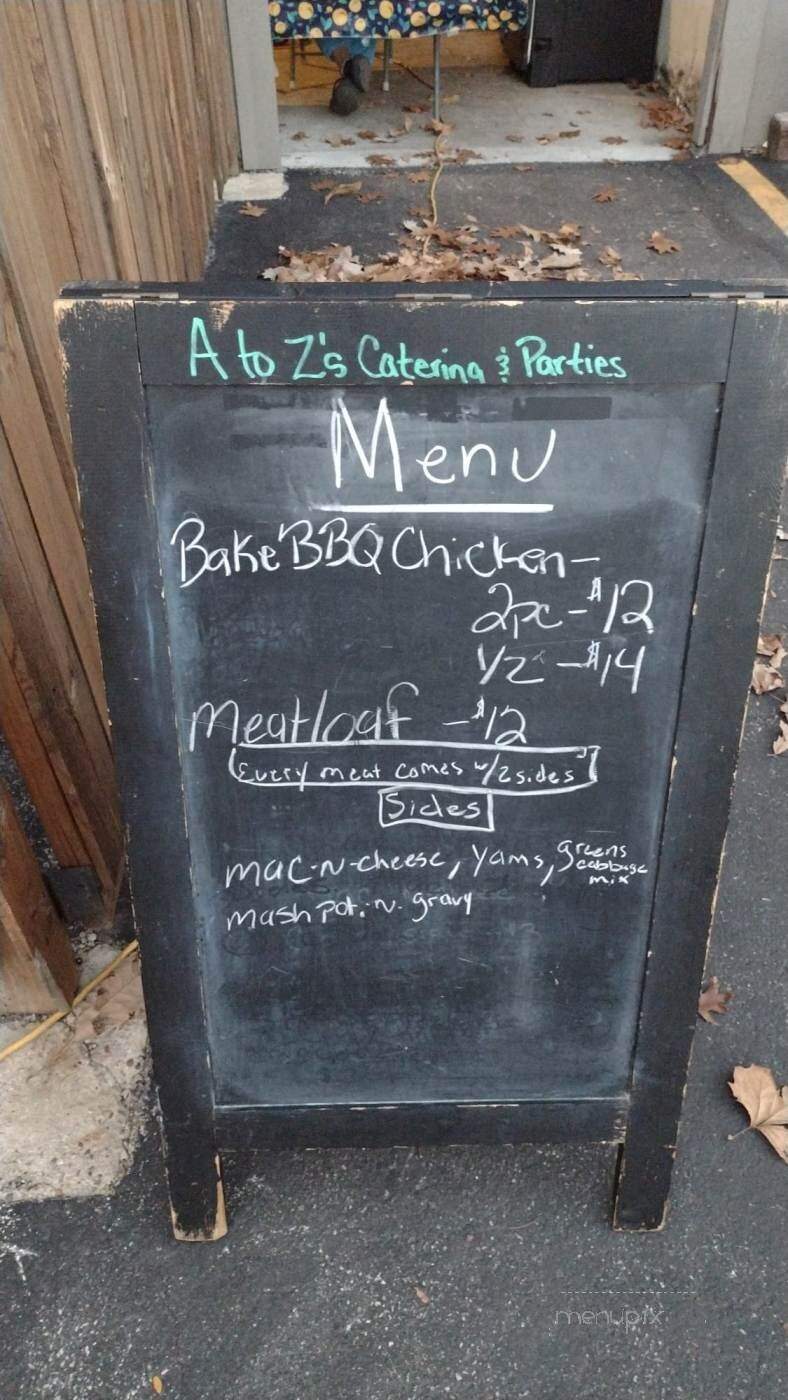 A to Z's Catering & Parties
Menu
Bake BBQ Chicken -
2pc - $12
1/2 - $14
Meatloaf - $12
Every meat comes w/2 sides
Sides
mac-N-cheese, yams, greens cabbage mix
mash pot. N. gravy
menupix